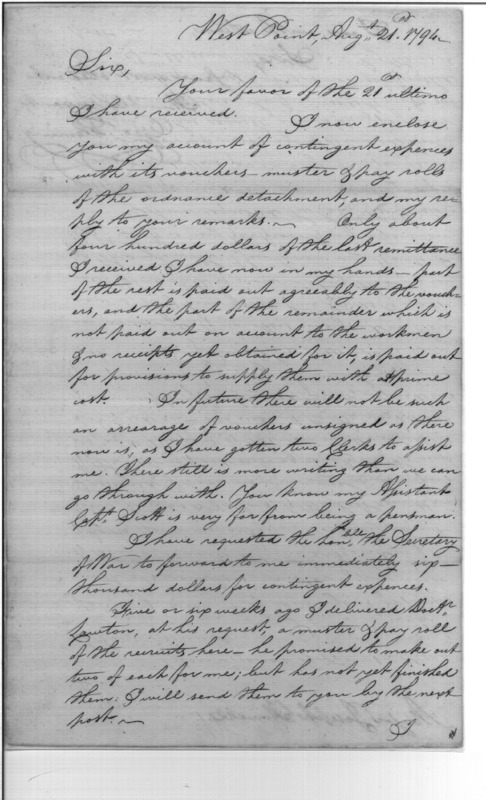 West Point, Augt. 21st. 1794
Sir,
Your favor of the 2d ultimo
I have received. I now enclose
you my account of contingent expences
with its vouchers - muster & pay rolls
of the ordnance detachment, and my re-
ply to your remarks. ~ Only about
four hundred dollars of the last remittance
I received I have now in my hands - part
of the rest is paid out agreeably to the vouch-
ers, and the part of the remainder which is
not paid out on account to the workmen
& no receipts yet obtained for it, is paid out
for provisions to supply them with at prime
cost. In future there will not be such
an arrearage of vouchers unsigned as there
now is, as I have gotten two Clerks to assist
me. There still is more writing than we can
go through with. You know my Assistant
Capt. Scott is very far from being a penman.
I have requested the honble. the Secretery
of War to forward to me immediately six-
thousand dollars for contingent expences.
Five or six weeks ago I delivered Doctr.
Lawton, at his request, a muster & pay roll
of the recruits here - he promised to make out
two of each for me; but has not yet finished
them. I will send them to you by the next
post. ~
I